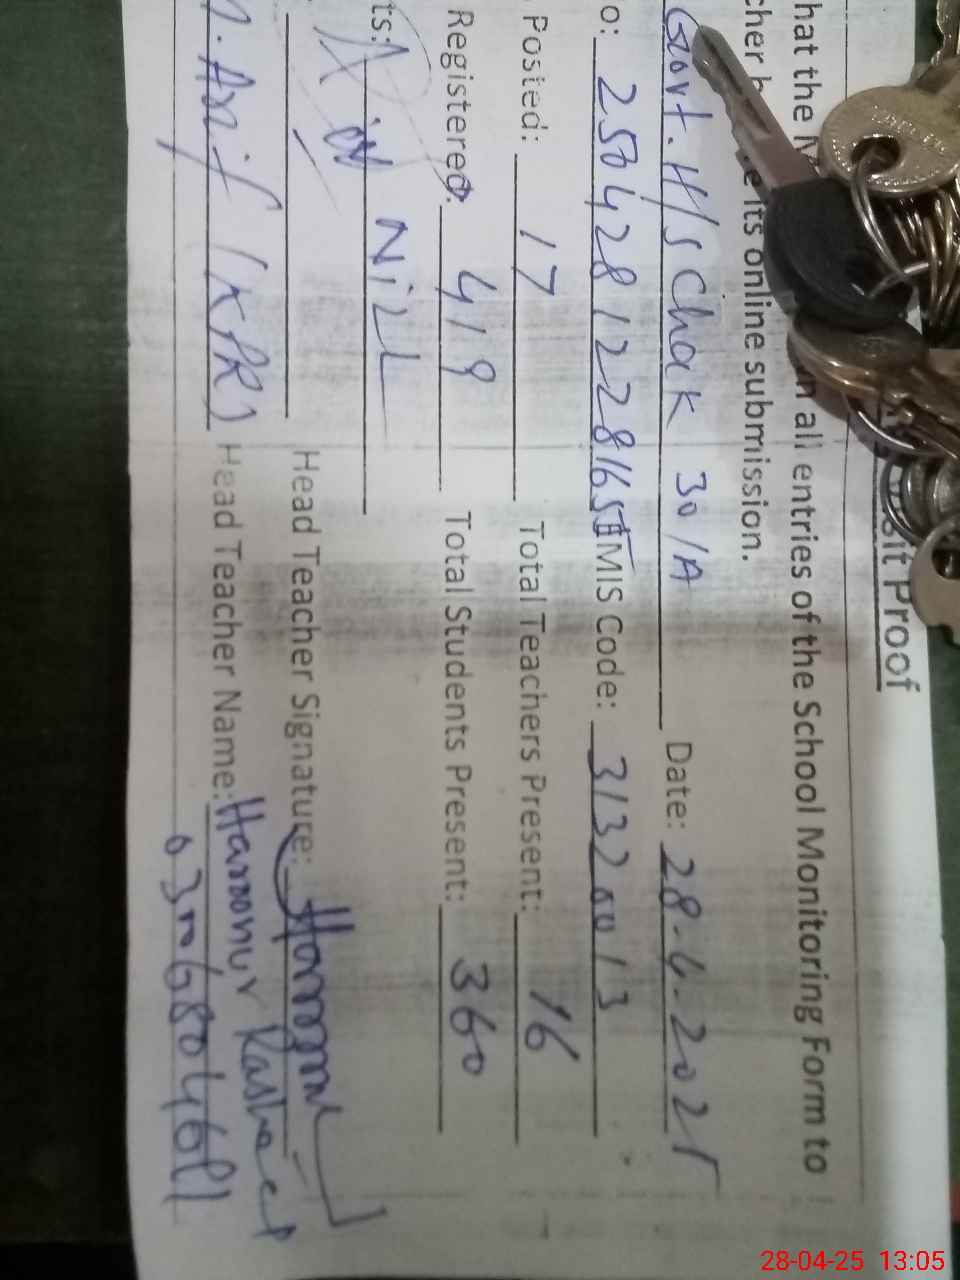 sit Proof
hat the
in all entries of the School Monitoring Form to
cher its online submission.
Govt. H/S Chak 30/A Date: 28.4.2025
o: 2504281228165 EMIS Code: 31320013
Posted: 17 Total Teachers Present: 16
Registered: 419 Total Students Present: 360
ts: NiLL
Head Teacher Signature:
M. Asif (KPR) Head Teacher Name: Haroonur Rasheed
28-04-25 13:05